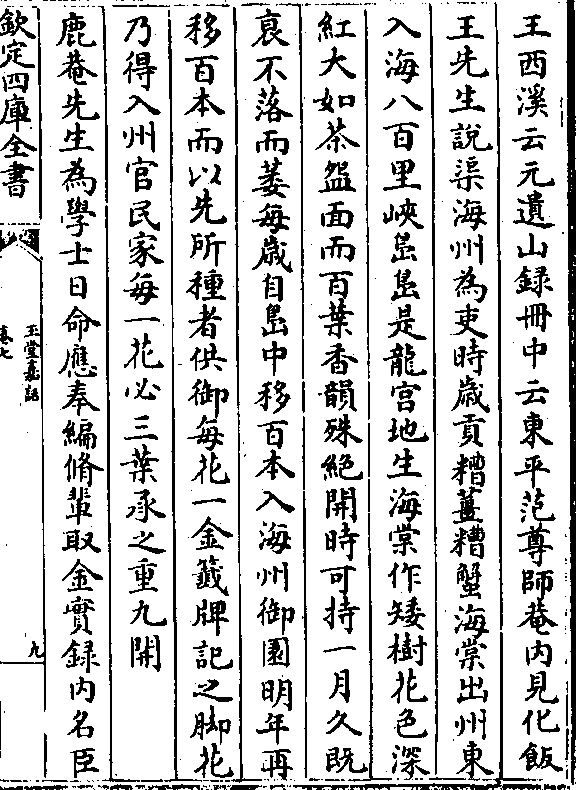 王西溪云元遺山録冊中云東平范尊師菴内見化飯
王先生說渠海州為吏時歲貢糟薑糟蟹海棠出州東
入海八百里峽島島是龍宫地生海棠作矮樹花色深
紅大如茶盌面而百葉香韻殊絶開時可持一月久既
衰不落而萎每歲自島中移百本入海州御園明年再
移百本而以先所種者供御每花一金籖牌記之脚花
乃得入州官民家每一花必三葉承之重九開
鹿菴先生為學士日命應奉編脩輩取金實録内名臣
欽定四庫全書
玉堂嘉話
卷七
九